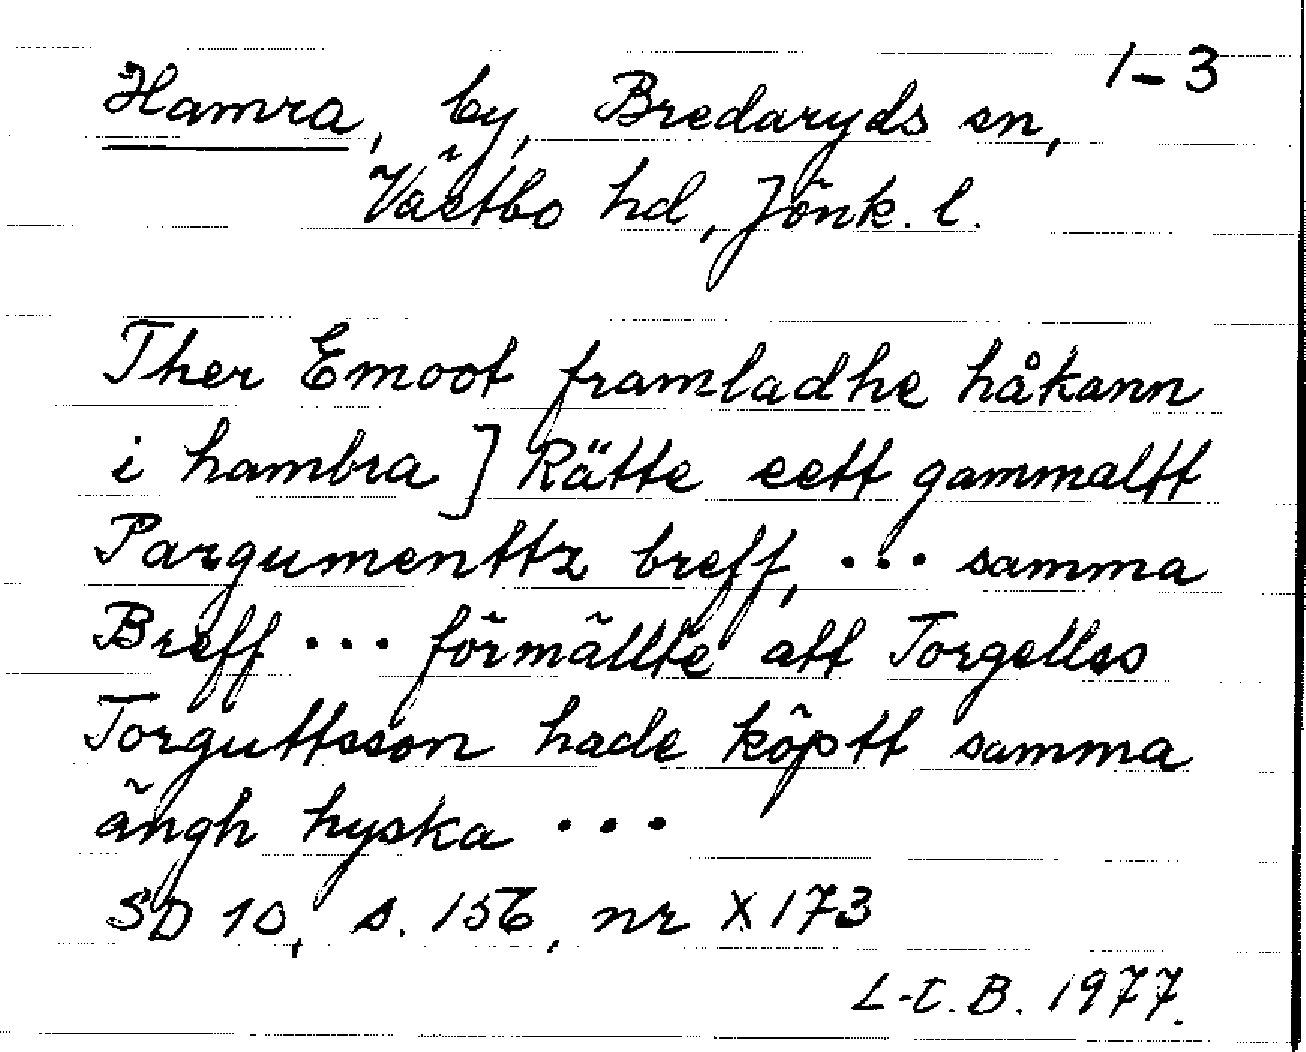 1-3
Hamra, by, Bredaryds sn,
Västbo hd, Jönk. l.
Ther Emoot framladhe håkann
i hambra ] Rätte eett gammaltt
Pargumenttz breff, ... samma
Breff ... förmällte att Torgelles
Torguttsson hade köptt samma
ängh hyska ...
SD 10, s. 156, nr X 173
L-C. B. 1977.